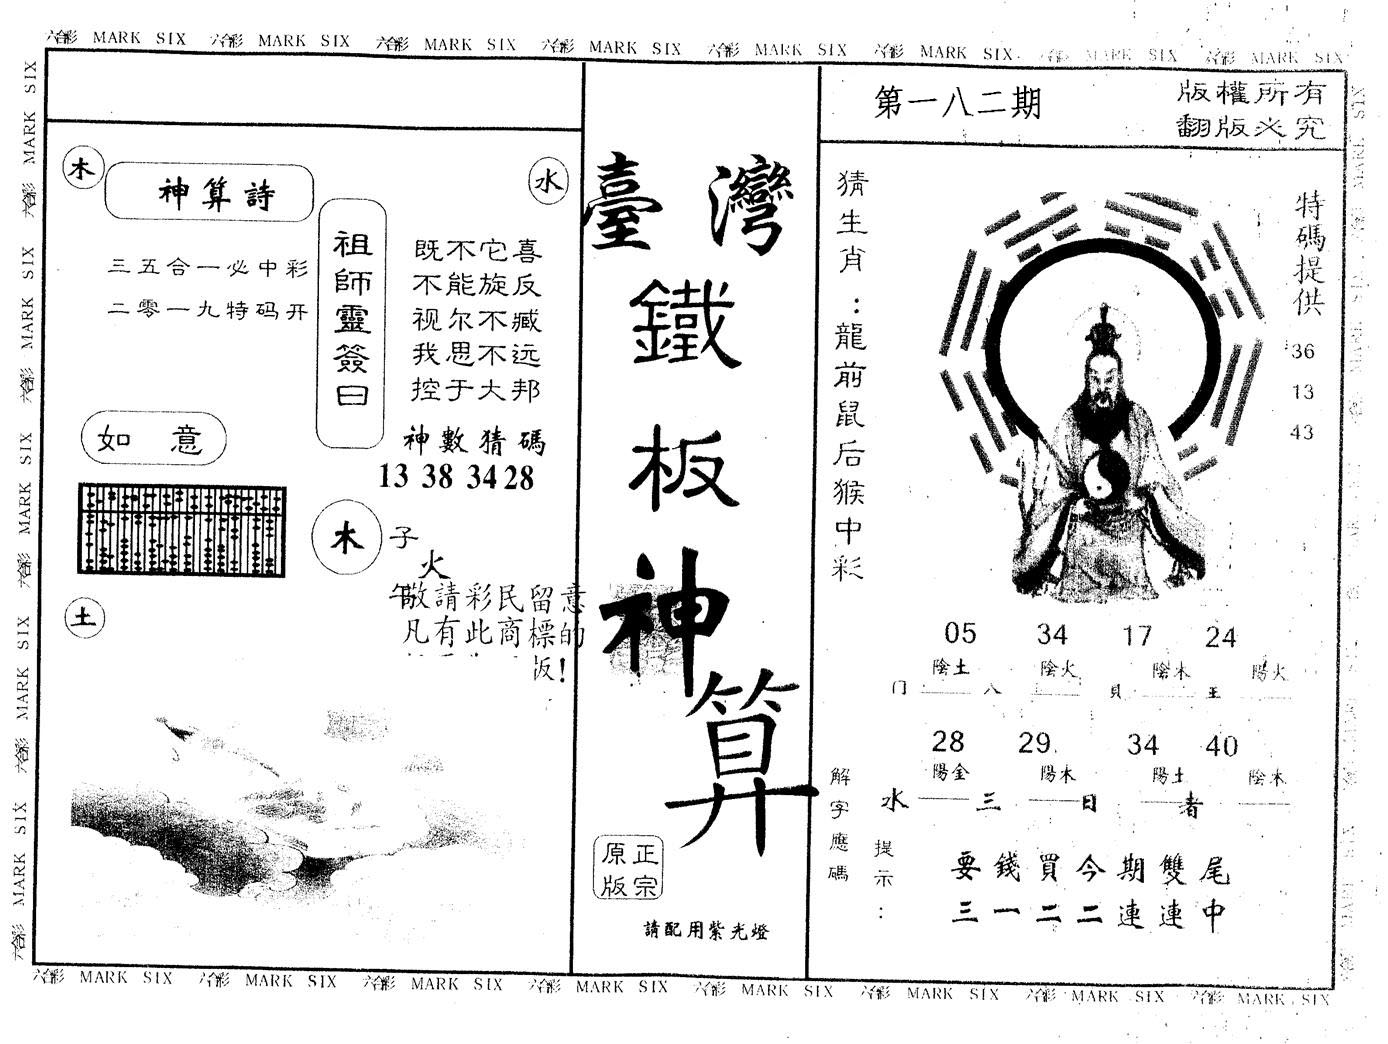 六合彩 MARK SIX 六合彩 MARK SIX 六合彩 MARK SIX 六合彩 MARK SIX 六合彩 MARK SIX 六合彩 MARK SIX 六合彩 MARK SIX 六合彩 MARK SIX
木
神算詩
水
三五合一必中彩
二零一九特码开
祖師靈簽曰
既不它喜
不能旋反
视尔不臧
我思不远
控于大邦
如意
神數猜碼
13 38 34 28
木
子
火
午
土
敬請彩民留意
凡有此商標的
版!
臺灣
鐵
板
神
算
正宗
原版
請配用紫光燈
第一八二期
版權所有
翻版必究
猜生肖:龍前鼠后猴中彩
特碼提供
36
13
43
05 34 17 24
陰土 陰火 陰木 陽火
门 八 貝 王
28 29. 34 40
陽金 陽木 陽土 陰木
水 三 日 者
解字應碼
提示:
要錢買今期雙尾
三一二二連連中
六合彩 MARK SIX 六合彩 MARK SIX 六合彩 MARK SIX 六合彩 MARK SIX 六合彩 MARK SIX 六合彩 MARK SIX 六合彩 MARK SIX 六合彩 MARK SIX
六合彩 MARK SIX 六合彩 MARK SIX 六合彩 MARK SIX 六合彩 MARK SIX 六合彩 MARK SIX